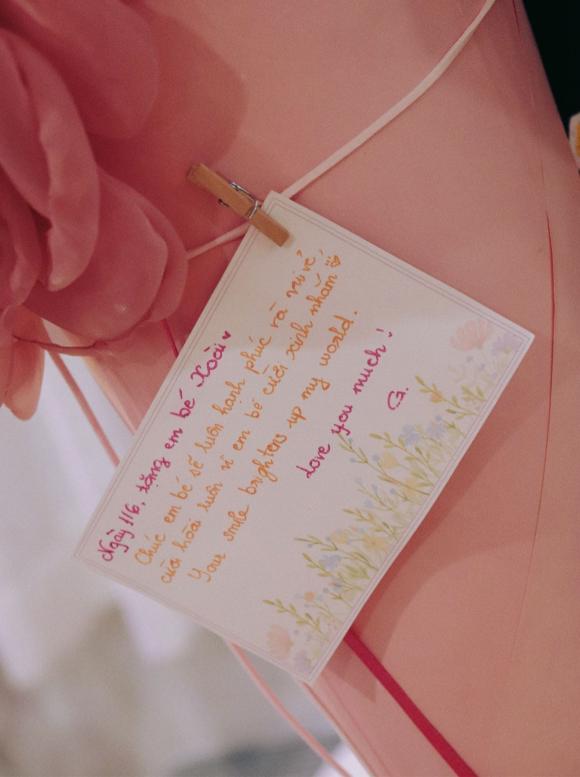 Ngày 1/6, tặng em bé Xoài ♥
Chúc em bé sẽ luôn hạnh phúc và vui vẻ,
cười hoài luôn vì em bé cười xinh nhắm
Your smile brightens up my world.
Love you much!
G.